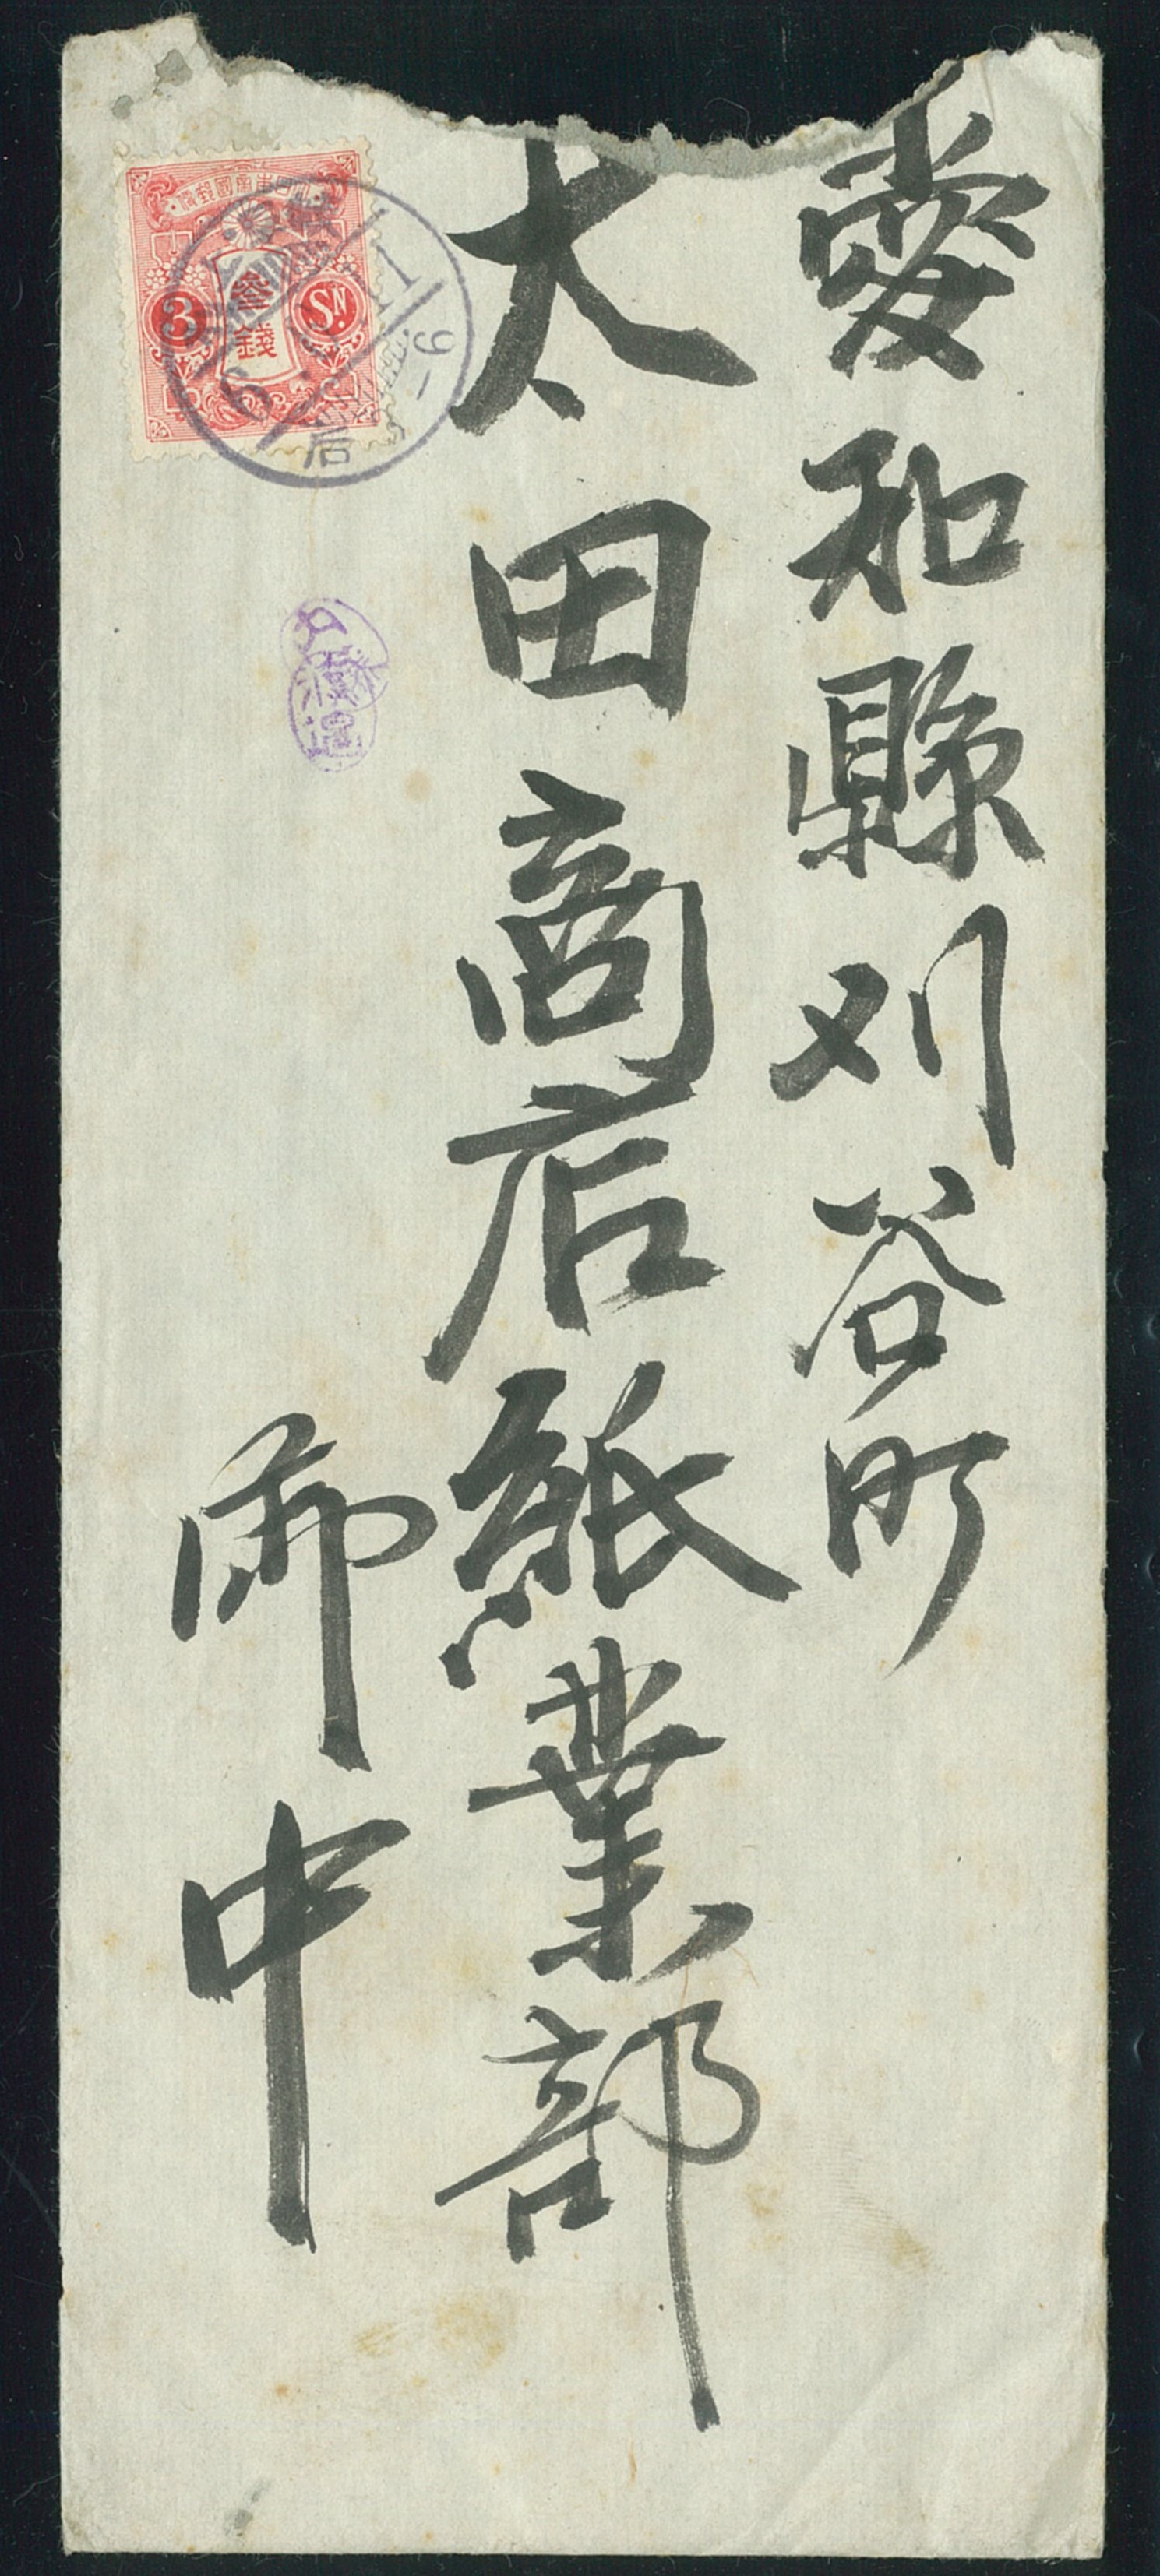 愛知縣刈谷町
太田商店紙業部
御中
大日本帝國郵便
參錢
3
SN.